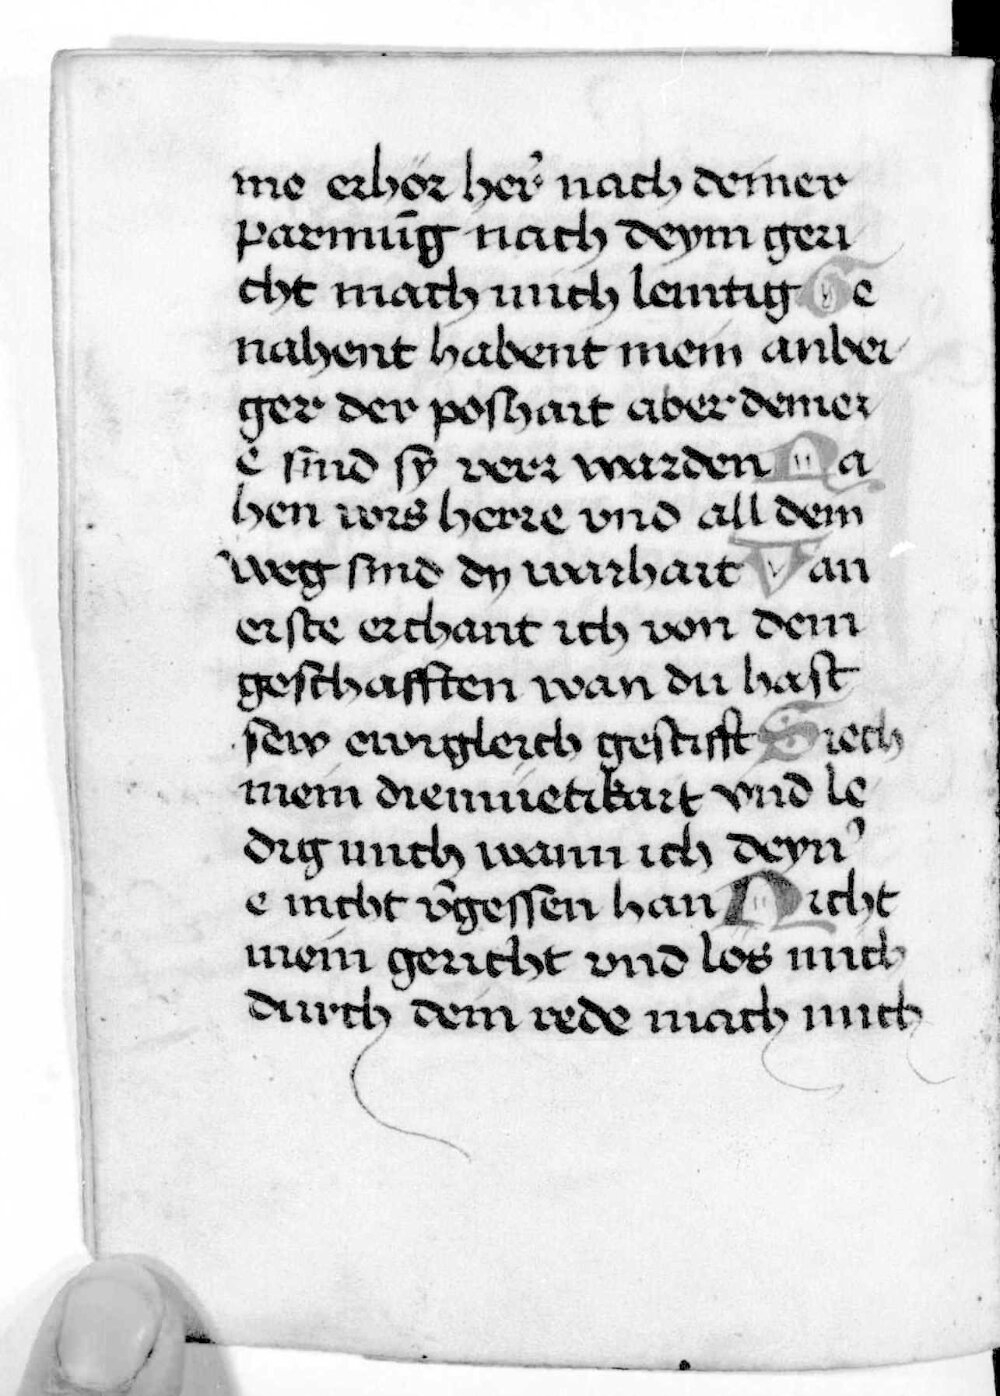 me erhör her̾ nach deiner
parmūg nach deym geri
cht mach mich lemtig Ge
nahent habent mein anber
ger der poshait aber deiner
e sind sy verr warden Na
hen wis herre vnd all dein
weg sind dy warhait Van
erste erchant ich von dein
geschafften wan du hast
sew ewigleich gestifft Siech
mein diemüetikait vnd le
dig mich wann ich deyn̾
e nicht v̄gessen han Richt
mein gericht vnd los mich
durch dein rede mach mich